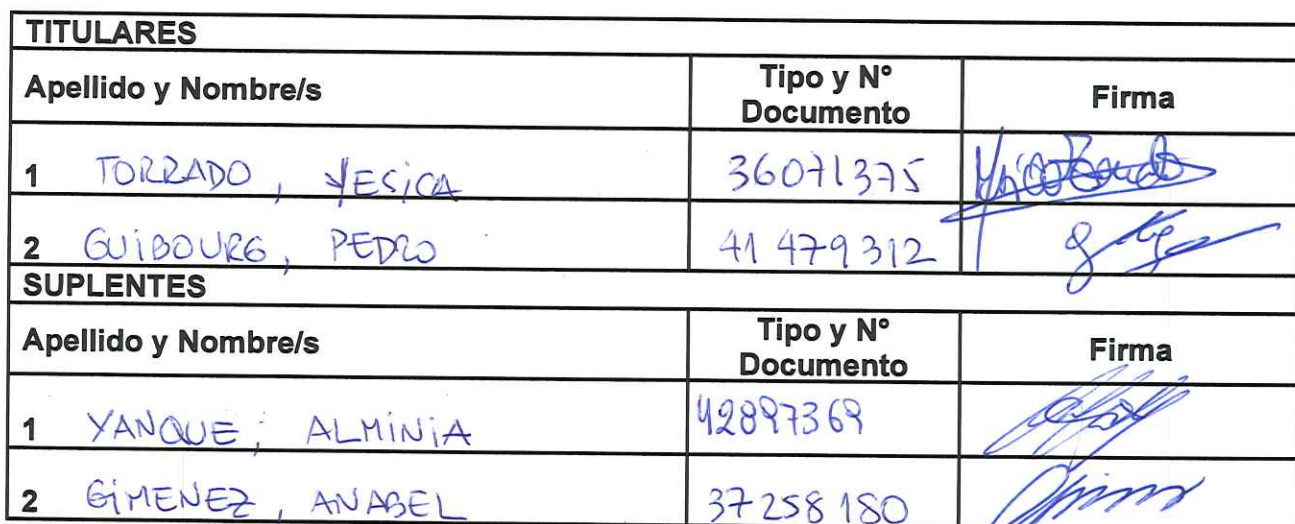 TITULARES
Apellido y Nombre/s Tipo y N° Documento Firma
1 TORRADO, YESICA 36071375
2 GUIBOURG, PEDRO 41 479 312
SUPLENTES
Apellido y Nombre/s Tipo y N° Documento Firma
1 YANQUE, ALMINIA 42897369
2 GIMENEZ, ANABEL 37 258 180